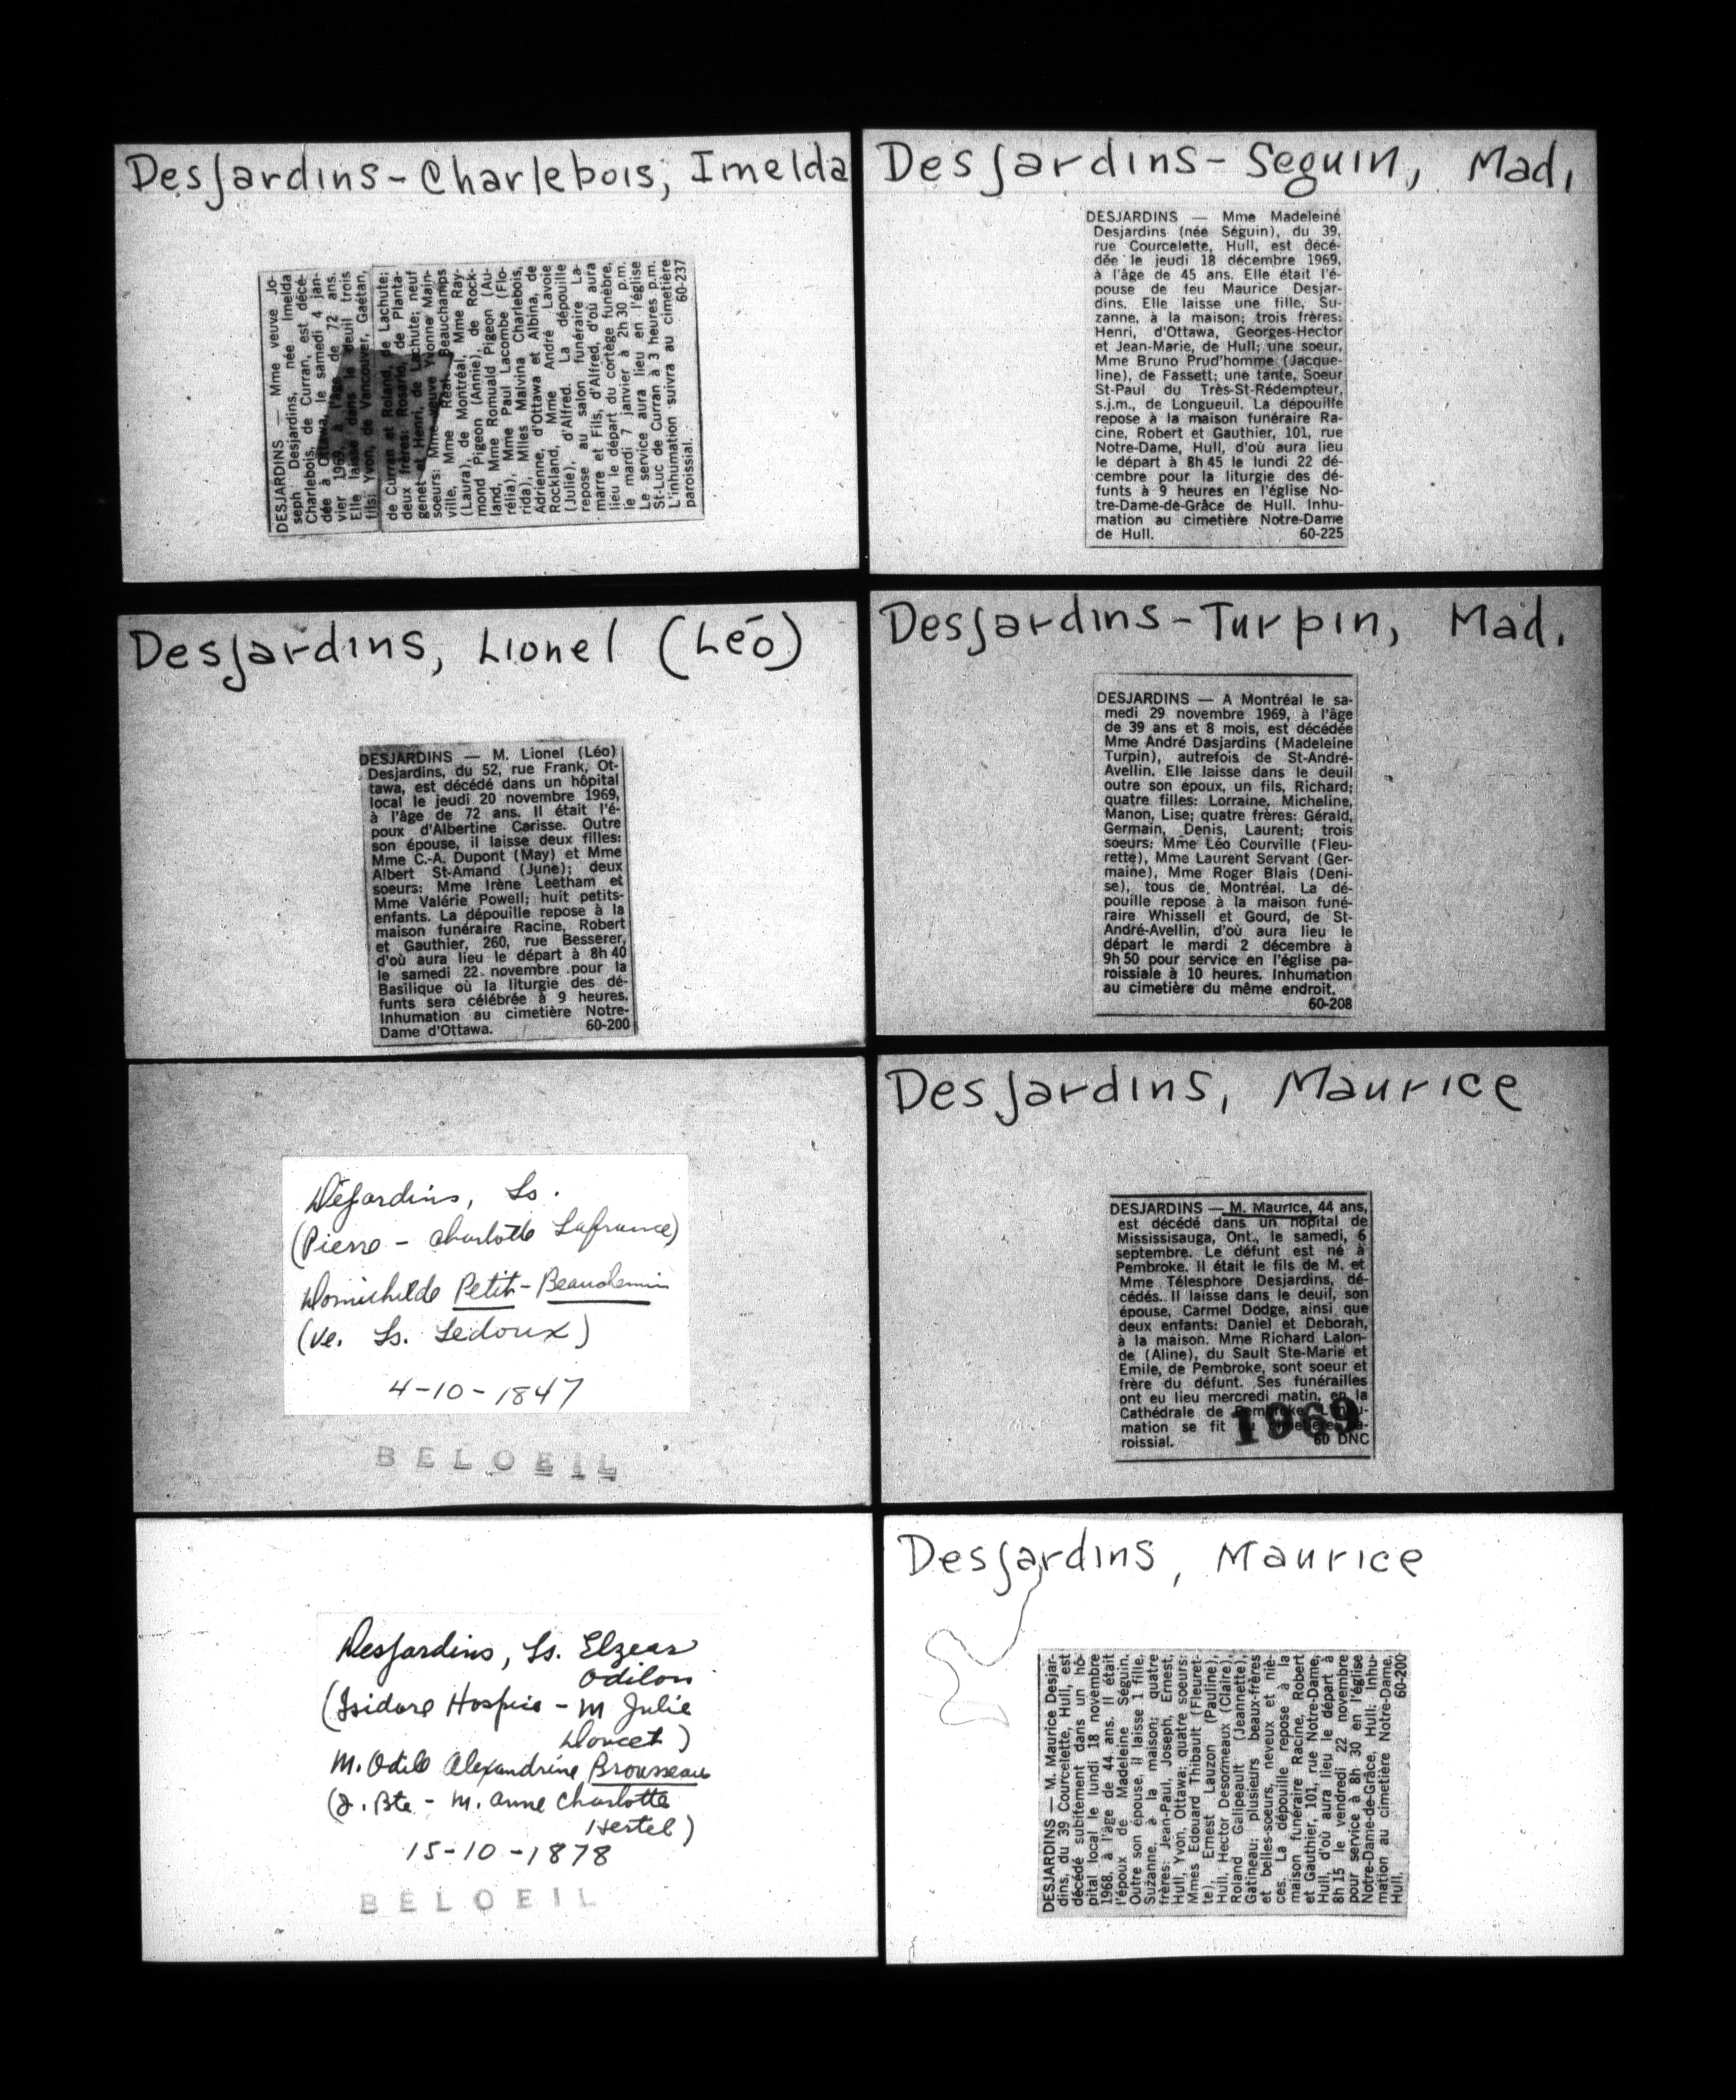 DesJardins-Charlebois, Imelda
DESJARDINS — Mme veuve Jo-
seph Desjardins, née Imelda
Charlebois, de Curran, est décé-
dée à Ottawa, le samedi 4 jan-
vier 1969, à l'âge de 72 ans.
Elle laisse dans le deuil trois
fils: Yvon, de Vancouver, Gaétan,
de Curran et Roland, de Lachute;
deux frères: Rosario, de Planta-
genet et Henri, de Lachute; neuf
soeurs: Mme veuve Yvonne Main-
ville, Mme Réal Beauchamps
(Laura), de Montréal, Mme Ray-
mond Pigeon (Annie), de Rock-
land, Mme Romuald Pigeon (Au-
rélia), Mme Paul Lacombe (Flo-
rida), Milles Malvina Charlebois,
Adrienne, d'Ottawa et Albina, de
Rockland, Mme André Lavoie
(Julie), d'Alfred. La dépouille
repose au salon funéraire La-
marre et Fils, d'Alfred, d'où aura
lieu le départ du cortège funèbre,
le mardi 7 janvier à 2h 30 p.m.
Le service aura lieu en l'église
St-Luc de Curran à 3 heures p.m.
L'inhumation suivra au cimetière
paroissial. 60-237
DesJardins-Seguin, Mad.
DESJARDINS — Mme Madeleine
Desjardins (née Séguin), du 39,
rue Courcelette, Hull, est décé-
dée le jeudi 18 décembre 1969,
à l'âge de 45 ans. Elle était l'é-
pouse de feu Maurice Desjar-
dins. Elle laisse une fille, Su-
zanne, à la maison; trois frères:
Henri, d'Ottawa, Georges-Hector
et Jean-Marie, de Hull; une soeur,
Mme Bruno Prud'homme (Jacque-
line), de Fassett; une tante, Soeur
St-Paul du Très-St-Rédempteur,
s.j.m., de Longueuil. La dépouille
repose à la maison funéraire Ra-
cine, Robert et Gauthier, 101, rue
Notre-Dame, Hull, d'où aura lieu
le départ à 8h 45 le lundi 22 dé-
cembre pour la liturgie des dé-
funts à 9 heures en l'église No-
tre-Dame-de-Grâce de Hull. Inhu-
mation au cimetière Notre-Dame
de Hull. 60-225
DesJardins, Lionel (Léo)
DESJARDINS — M. Lionel (Léo)
Desjardins, du 52, rue Frank, Ot-
tawa, est décédé dans un hôpital
local le jeudi 20 novembre 1969,
à l'âge de 72 ans. Il était l'é-
poux d'Albertine Carisse. Outre
son épouse, il laisse deux filles:
Mme C.-A. Dupont (May) et Mme
Albert St-Amand (June); deux
soeurs: Mme Irène Leetham et
Mme Valérie Powell; huit petits-
enfants. La dépouille repose à la
maison funéraire Racine, Robert
et Gauthier, 260, rue Besserer,
d'où aura lieu le départ à 8h 40
le samedi 22 novembre pour la
Basilique où la liturgie des dé-
funts sera célébrée à 9 heures.
Inhumation au cimetière Notre-
Dame d'Ottawa. 60-200
DesJardins-Turpin, Mad.
DESJARDINS — A Montréal le sa-
medi 29 novembre 1969, à l'âge
de 39 ans et 8 mois, est décédée
Mme André Dasjardins (Madeleine
Turpin), autrefois de St-André-
Avellin. Elle laisse dans le deuil
outre son époux, un fils, Richard;
quatre filles: Lorraine, Micheline,
Manon, Lise; quatre frères: Gérald,
Germain, Denis, Laurent; trois
soeurs: Mme Léo Courville (Fleu-
rette), Mme Laurent Servant (Ger-
maine), Mme Roger Blais (Deni-
se), tous de Montréal. La dé-
pouille repose à la maison funé-
raire Whissell et Gourd, de St-
André-Avellin, d'où aura lieu le
départ le mardi 2 décembre à
9h 50 pour service en l'église pa-
roissiale à 10 heures. Inhumation
au cimetière du même endroit.
60-208
DésJardins, Ls.
(Pierre - Charlotte Lafrance)
Domichilde Petit-Beauchemin
(ve. Ls. Ledoux)
4-10-1847
BELOEIL
DesJardins, Maurice
DESJARDINS — M. Maurice, 44 ans,
est décédé dans un hôpital de
Mississisauga, Ont., le samedi, 6
septembre. Le défunt est né à
Pembroke. Il était le fils de M. et
Mme Télesphore Desjardins, dé-
cédés. Il laisse dans le deuil, son
épouse, Carmel Dodge, ainsi que
deux enfants: Daniel et Deborah,
à la maison. Mme Richard Lalon-
de (Aline), du Sault Ste-Marie et
Emile, de Pembroke, sont soeur et
frère du défunt. Ses funérailles
ont eu lieu mercredi matin, en la
Cathédrale de Pembroke. L'inhu-
mation se fit au cimetière pa-
roissial. 60 DNC
1969
DesJardins, Ls. Elzear
Odilon
(Isidore Hospice - M Julie
Doucet)
M. Odile Alexandrine Brousseau
(J. Bte - M. Anne Charlotte
Hertel)
15-10-1878
BELOEIL
DesJardins, Maurice
DESJARDINS — M. Maurice Desjar-
dins, du 39 Courcelette, Hull, est
décédé subitement dans un hô-
pital local le lundi 18 novembre
1968, à l'âge de 44 ans. Il était
l'époux de Madeleine Séguin.
Outre son épouse, il laisse 1 fille,
Suzanne, à la maison; quatre
frères: Jean-Paul, Joseph, Ernest,
Hull, Yvon, Ottawa; quatre soeurs:
Mmes Edouard Thibault (Fleuret-
te), Ernest Lauzon (Pauline),
Hull, Hector Desormeaux (Claire),
Roland Galipeault (Jeannette),
Gatineau; plusieurs beaux-frères
et belles-soeurs, neveux et niè-
ces. La dépouille repose à la
maison funéraire Racine, Robert
et Gauthier, 101, rue Notre-Dame,
Hull, d'où aura lieu le départ à
8h 15 le vendredi 22 novembre
pour service à 8h 30 en l'église
Notre-Dame-de-Grâce, Hull. Inhu-
mation au cimetière Notre-Dame,
Hull. 60-200